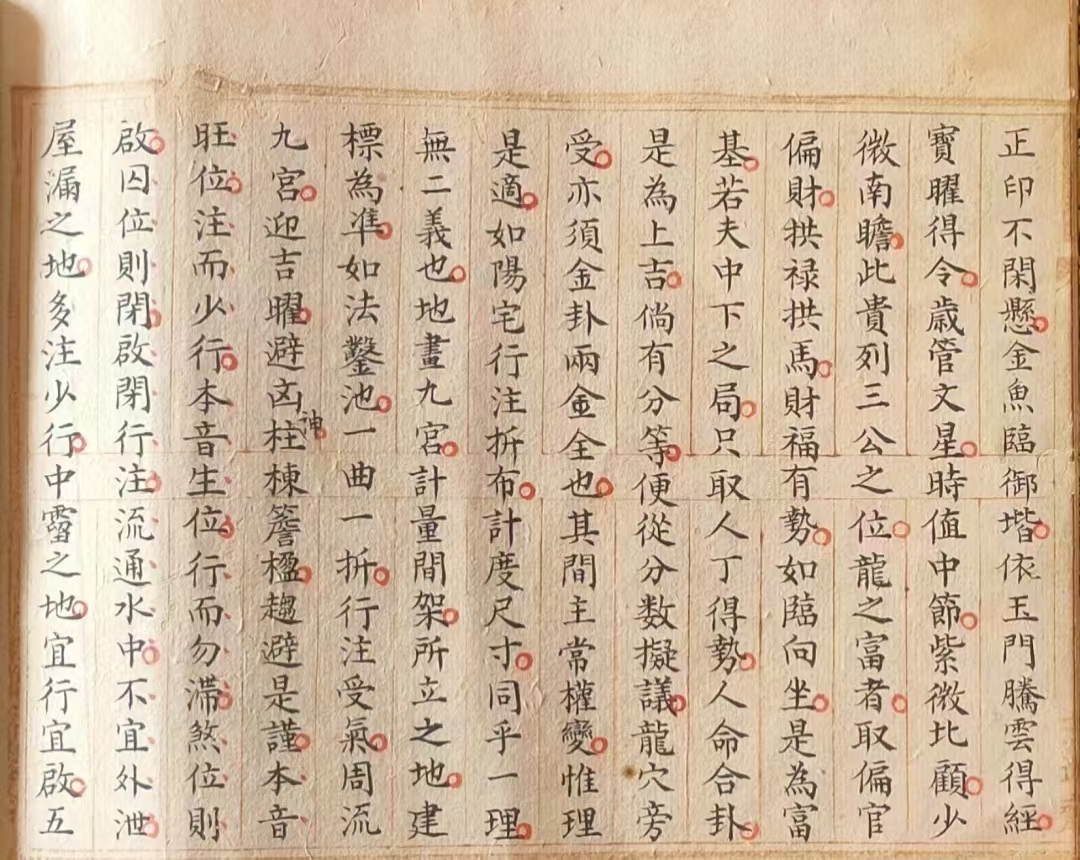 正印不閑懸金魚臨御堦依玉門騰雲得經
寶曜得令歳管文星時值中節紫微比顧少
微南瞻此貴列三公之位龍之富者取偏官
偏財拱禄拱馬財福有勢如臨向坐是為富
基若夫中下之局只取人丁得勢人命合卦
是為上吉倘有分等便從分数擬議龍穴旁
受亦須金卦兩金全也其間主常權變惟理
是適如陽宅行注折布計度尺寸同乎一理
無二義也地畫九宮計量間架所立之地建
標為準如法鑿池一曲一折行注受氣周流
九宮迎吉曜避凶神柱棟簷楹趨避是謹本音
旺位注而少行本音生位行而勿滯煞位則
啟囚位則閉啟閉行注流通水中不宜外泄
屋漏之地多注少行中霤之地宜行宜啟五